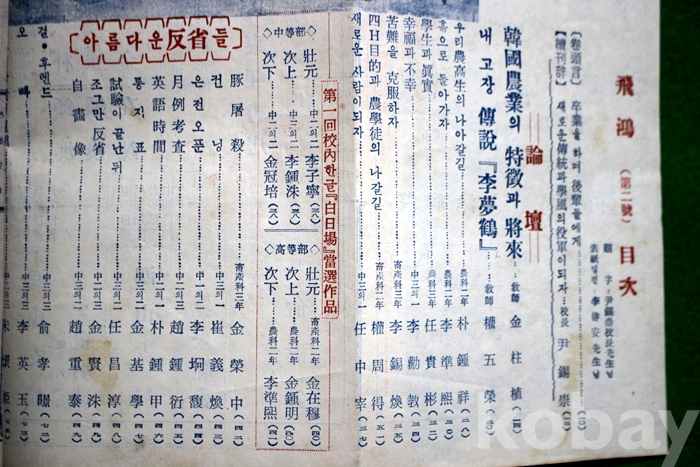 飛鴻 (第二號) 目次
題字…尹錫崇校長先生님
【卷頭言】 卒業을 하며 後輩들에게
【續刊辭】 새로운 傳統과 學風의 役軍이 되자…校長 尹錫崇
論壇
韓國農業의 特徵과 將來…敎師 金柱植
내 고장 傳說『李夢鶴』…敎師 權五榮
우리 農高生의 나아갈길…農科三年 朴鍾祥
흙으로 돌아가자…農科二年 李準熙
學生과 眞實 任貴彬
幸福과 不幸 李勸敎
苦難을 克服하자…畜産科三年 李錫煥
4H目的과 農學徒의 나갈길 權周得
새로운 사람이 되자 任中宰
第一回校內한글『白日場』當選作品
<中等部>
壯元…中三의二 李子寧
次上…中三의二 李鍾洙
次下…中二의二 金冠培
<高等部>
壯元…畜産科二年 金在穆
次上…農科二年 金鍾明
次下…農科二年 李準熙
아름다운 反省들
豚屠殺 畜産科三年 金榮中
건널 中三의一 崔義煥
은전 오푼 中三의二 李坰馥
月例考査 中三의二 趙鍾衍
英語時間 中三의一 朴鍾甲
통지표 金基學
試驗이 끝난 뒤 任昌淳
조그만 反省 金賢洙
自畵像 趙重泰
걸・후렌드 兪孝暻
오빠 李英玉
kobay